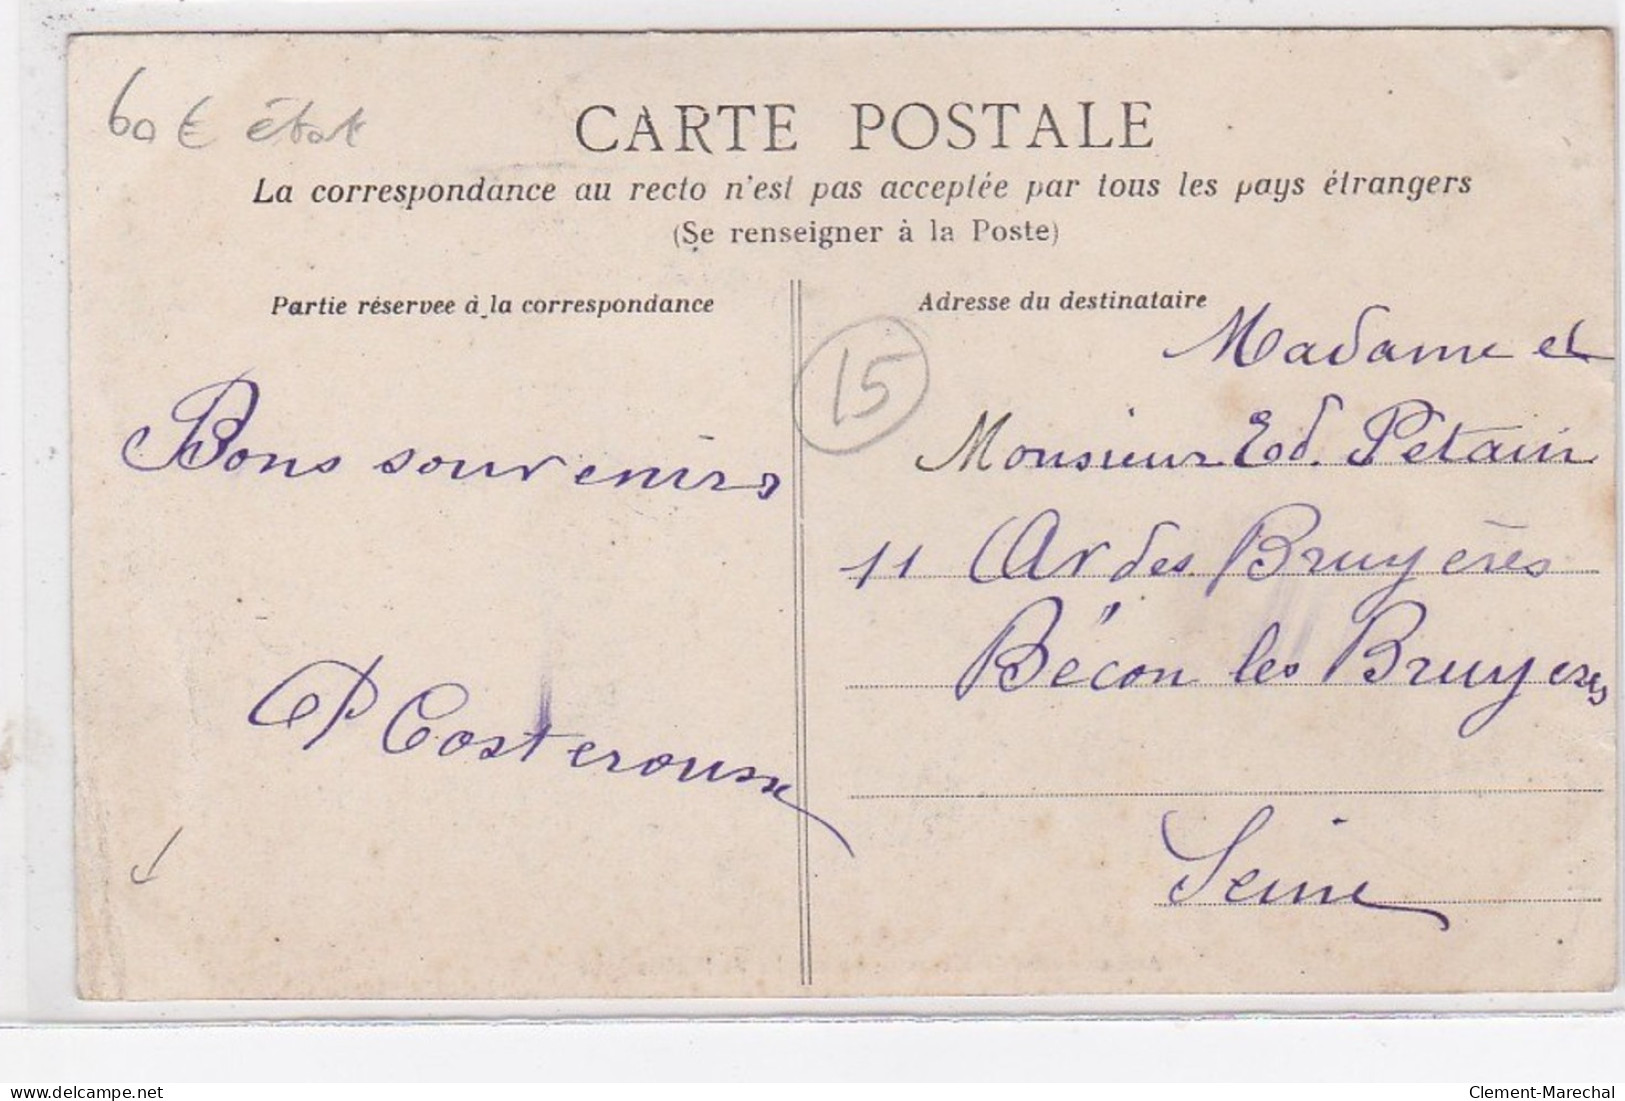 60 € état
CARTE POSTALE
La correspondance au recto n'est pas acceptée par tous les pays étrangers
(Se renseigner à la Poste)
Partie réservee à la correspondance
Bons souvenirs
P Costerousse
Adresse du destinataire
15
Madame et
Monsieur Ed. Pétain
11 Av des Bruyères
Bécon les Bruyeres
Seine
delcampe.net
Clement-Marechal